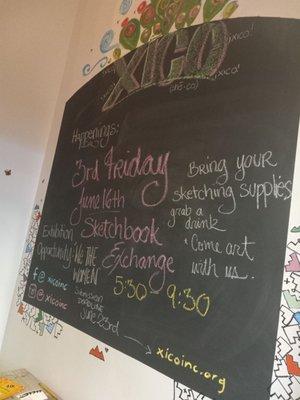 XICO
(shē·co)
xico!
xico!
Happenings:
3rd Friday
June 16th
Sketchbook
Exchange
5:30 - 9:30
Bring your
sketching supplies
grab a
drink
Come art
with us.
Exhibition
Opportunity:
WE THE
WOMEN
Submission
DEADLINE
June 23rd
@xicoinc
@xicoinc
xicoinc.org